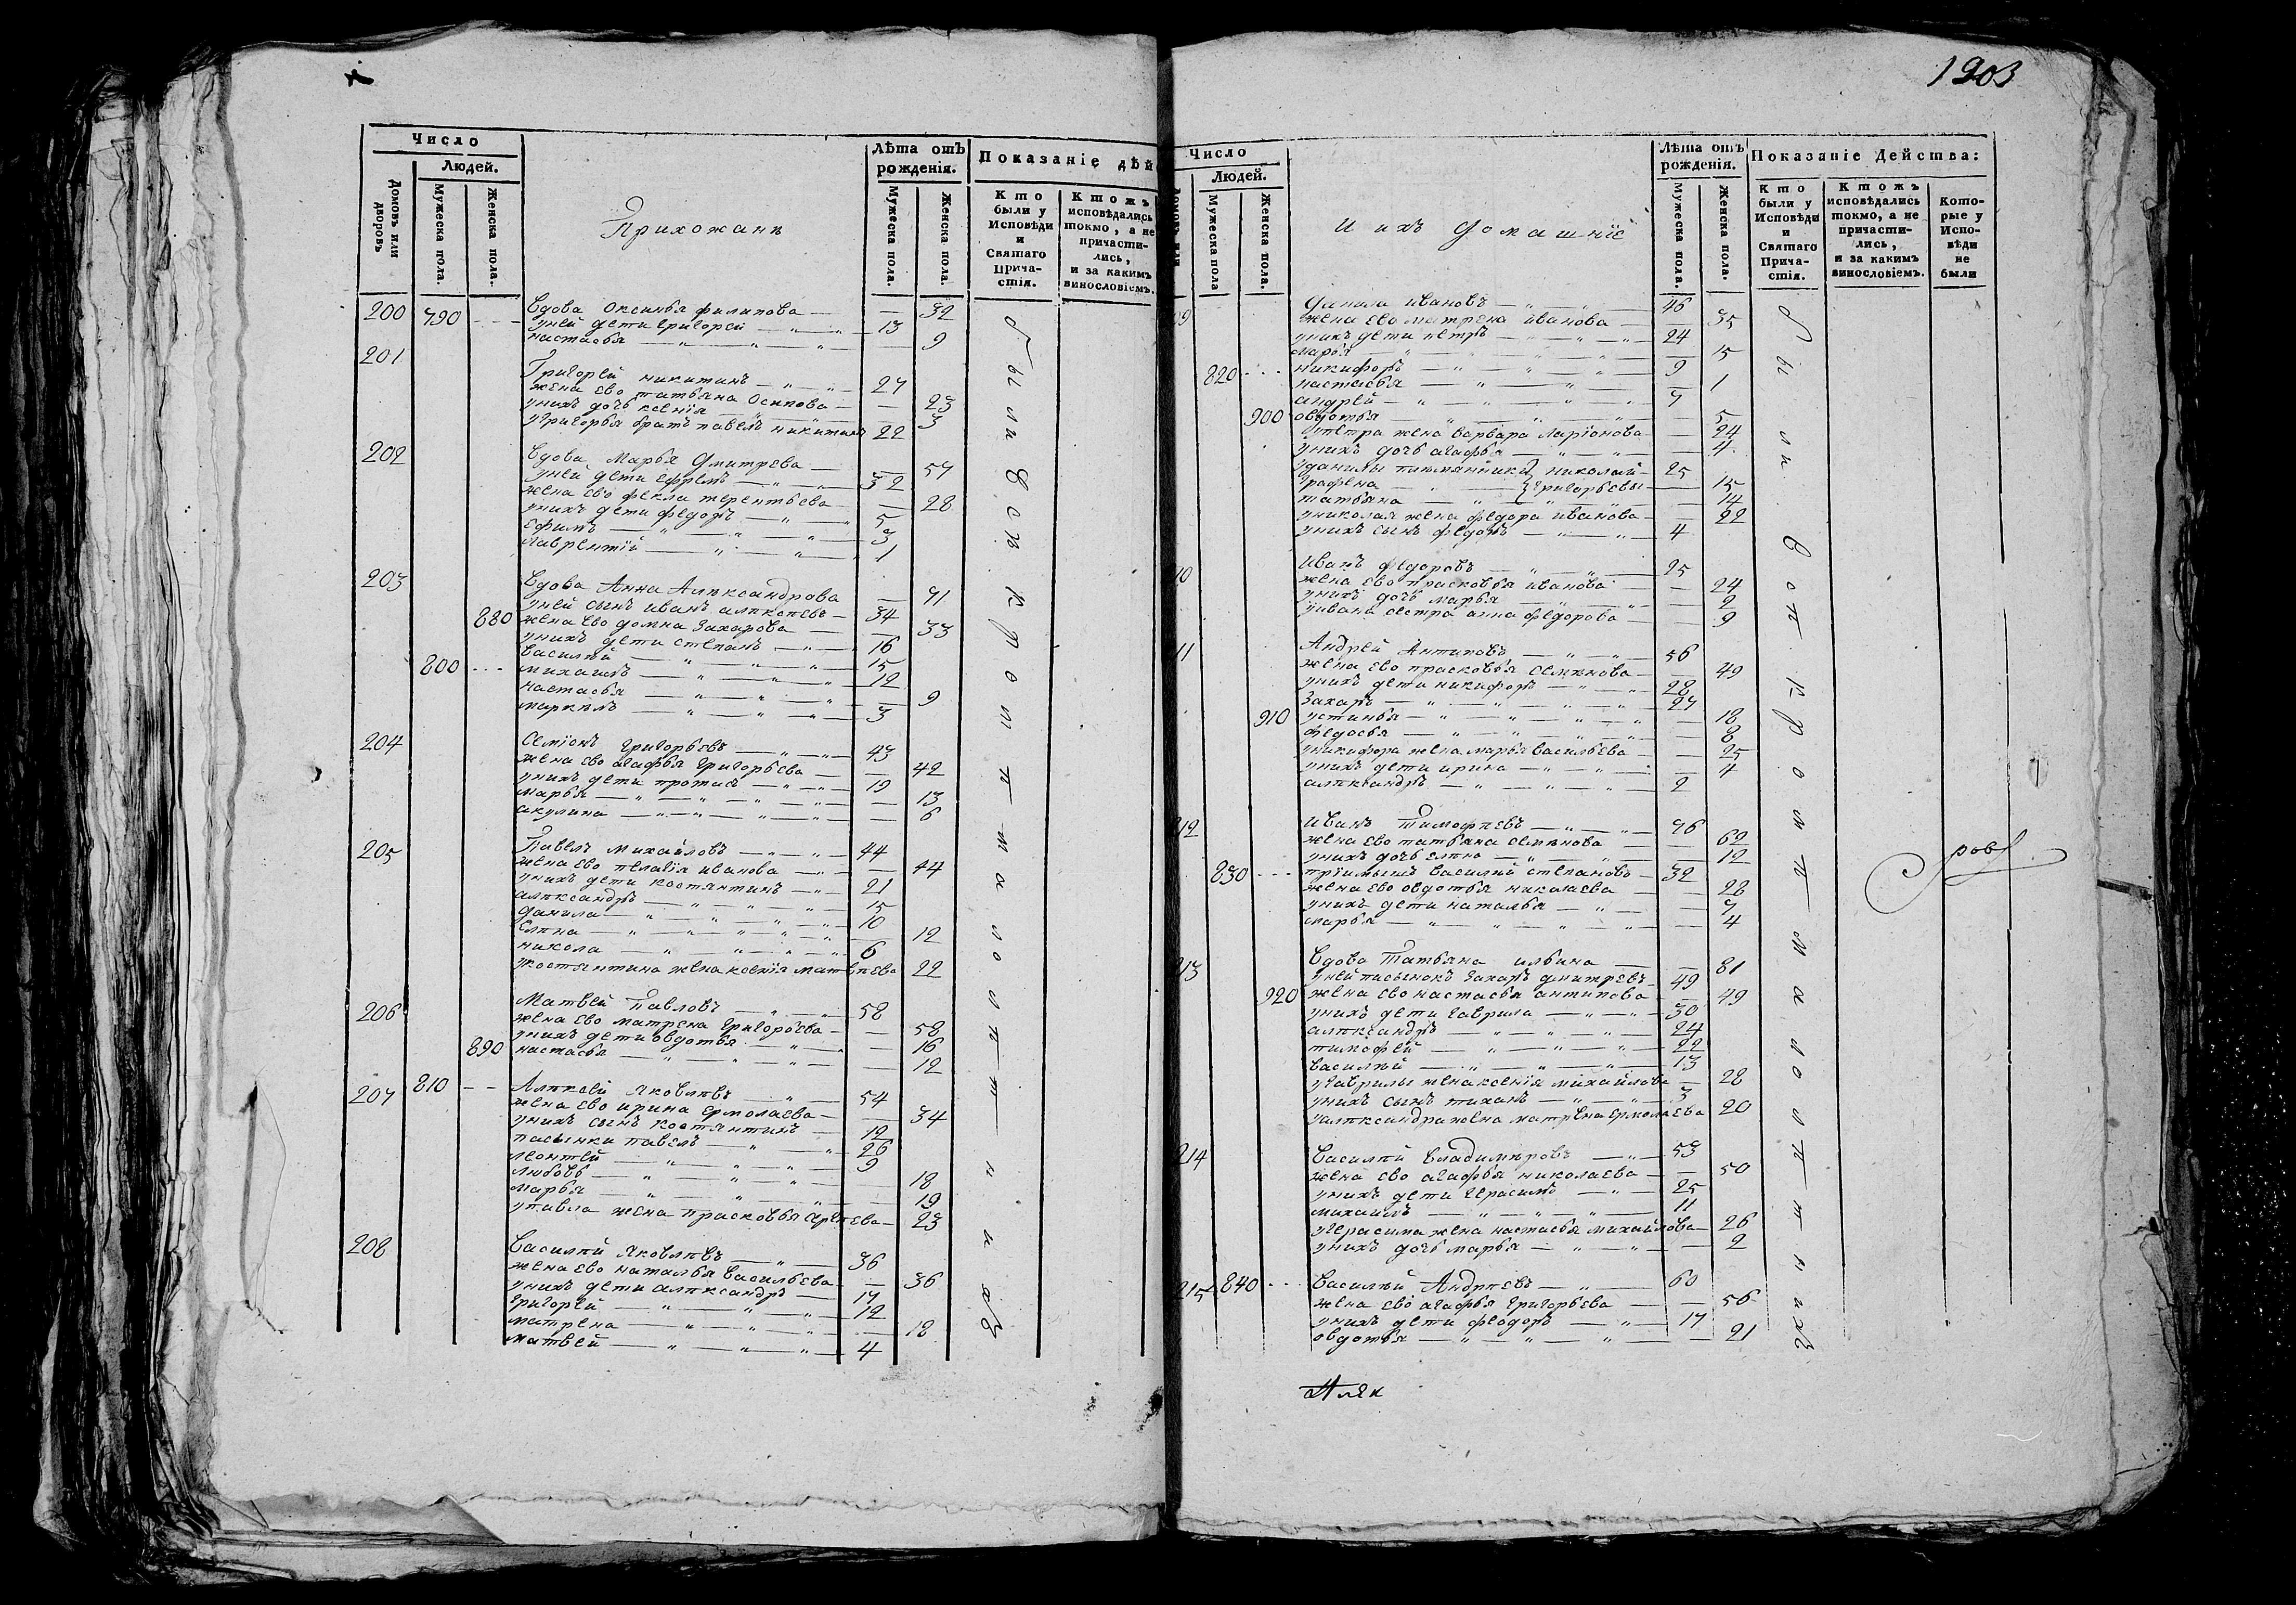 1203
Число
Людей.
Домовъ или дворовъ
Мужеска пола.
Женска пола.
Прихожанѣ
Лѣта отъ рожденія.
Мужеска пола.
Женска пола.
Показаніе дѣй
Кто были у Исповѣди и Святаго Прича-стія.
Ктожъ исповѣдались токмо, а не причасти-лись, и за какимъ винословіемъ.
200 790 Вдова Оксинья филипова — 32
уней дети григорей 13
настасья — 9
201 Григорей никитинъ 27
жена ево татьяна Осипова — 23
унихъ дочь ксенія 3
угригорья братъ павелъ никитинъ 22
202 Вдова Марья Дмитрева — 57
уней дети ефремъ 32
жена ево фекла терентьева — 28
унихъ дети федоръ 5
ефимъ 3
лаврентій 1
203 Вдова Анна Алѣксандрова — 71
уней сынъ иванъ алѣксѣевъ 34
880 жена ево домна захарова — 33
унихъ дети степанъ 16
василѣй 15
800 михаилъ 12
настасья — 9
маркѣлъ 3
204 Семіонъ григорьевъ 43
жена ево агафья григорьева — 42
унихъ дети протасъ 19
марья — 13
акулина — 6
205 Павелъ михайловъ 44
жена ево пелагія иванова — 44
унихъ дети костянтинъ 21
алѣксандръ 15
данила 10
Елѣна 12
никола 6
укостянтина жена ксенія матвѣева 22
206 Матвей Павловъ 58
жена ево матрена григорьева — 58
унихъ дети овдотья — 16
890 настасья — 12
207 810 Алѣксей яковлѣвъ 54
жена ево ирина ермолаева — 34
унихъ сынъ костянтинъ 12
пасынки павелъ 26
леонтей 9
любовь — 18
марья — 19
упавла жена прасковья сергѣева 23
208 Василѣй яковлѣвъ 36
жена ево наталья васильева — 36
унихъ дети алѣксандръ 17
григорей 12
матрена — 18
матвей 4
были в св крфотѣ малолѣтнихъ
Число
Людей.
Мужеска пола
Женска пола.
и ихъ домашніе
Лѣта отъ рожденія.
Мужеска пола.
Женска пола.
Показаніе Действа:
Кто были у Исповѣди и Святаго Прича-стія.
Ктожъ исповѣдались токмо, а не причасти-лись, и за какимъ винословіемъ.
Кото-рые у Испо-вѣди не были
9 Данила ивановъ 46
жена ево матрена иванова — 35
унихъ дети петръ 24
марья — 15
820 никифоръ 9
настасья — 1
андрей 7
900 овдотья — 5
упетра жена варвара ларіонова — 24
унихъ дочь агафья — 4
уданилы племянники николай 25
графена } григорьевы — 15
татьяна — 14
униколая жена федора иванова — 22
унихъ сынъ федоръ 4
10 Иванъ федоровъ 25
жена ево прасковья иванова — 24
унихъ дочь марья — 2
уивана сестра анна федорова — 9
11 Андрей Антиповъ 56
жена ево прасковья семѣнова — 49
унихъ дети никифоръ 28
захаръ 27
910 устинья — 18
федосья — 8
уникифора жена марья васильева — 25
унихъ дети ирина — 4
алѣксандръ 2
212 Иванъ тимофѣевъ 76
жена ево татьяна семѣнова — 62
унихъ дочь елѣна — 12
830 пріимышъ василѣй степановъ 32
жена ево овдотья николаева — 28
унихъ дети наталья — 7
марья — 4
213 Вдова Татьяна ильина — 81
уней пасынокъ захаръ дмитревъ 49
920 жена ево настасья антипова — 49
унихъ дети гаврила 30
алѣксандръ 24
тимофей 22
василѣй 13
угаврилы жена ксенія михайлова — 28
унихъ сынъ тиханъ 3
уалѣксандра жена матрена ермолаева 20
214 Василѣй владимѣровъ 53
жена ево агафья николаева — 50
унихъ дети герасимъ 25
михаилъ 11
угерасима жена настасья михайлова 26
унихъ дочь марья — 2
215 840 Василѣй Андрѣевъ 60
жена ево агафья григорьева — 56
унихъ дети федоръ 17
овдотья — 21
ровъ
Аляк